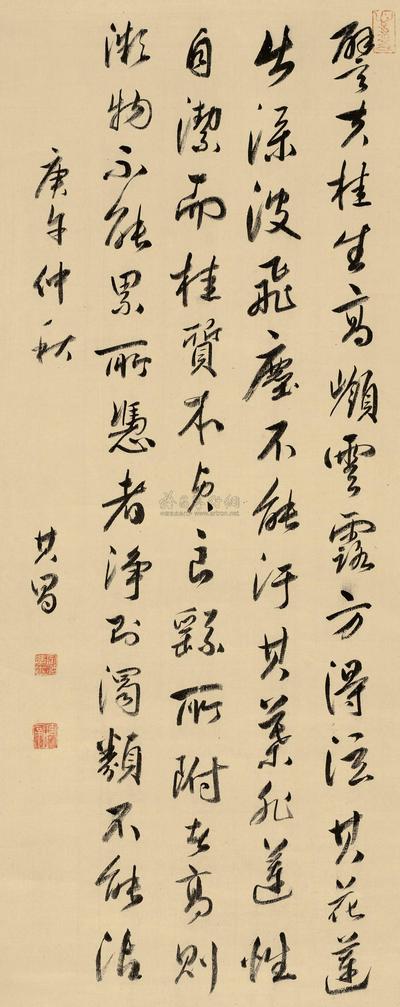 譬夫桂生高嶺雲露方得泫其花蓮
出渌波飛塵不能汙其葉非蓮性
自潔而桂質本貞良繇所附者高則
微物不能累所憑者淨則濁類不能沾
庚午仲秋 其昌